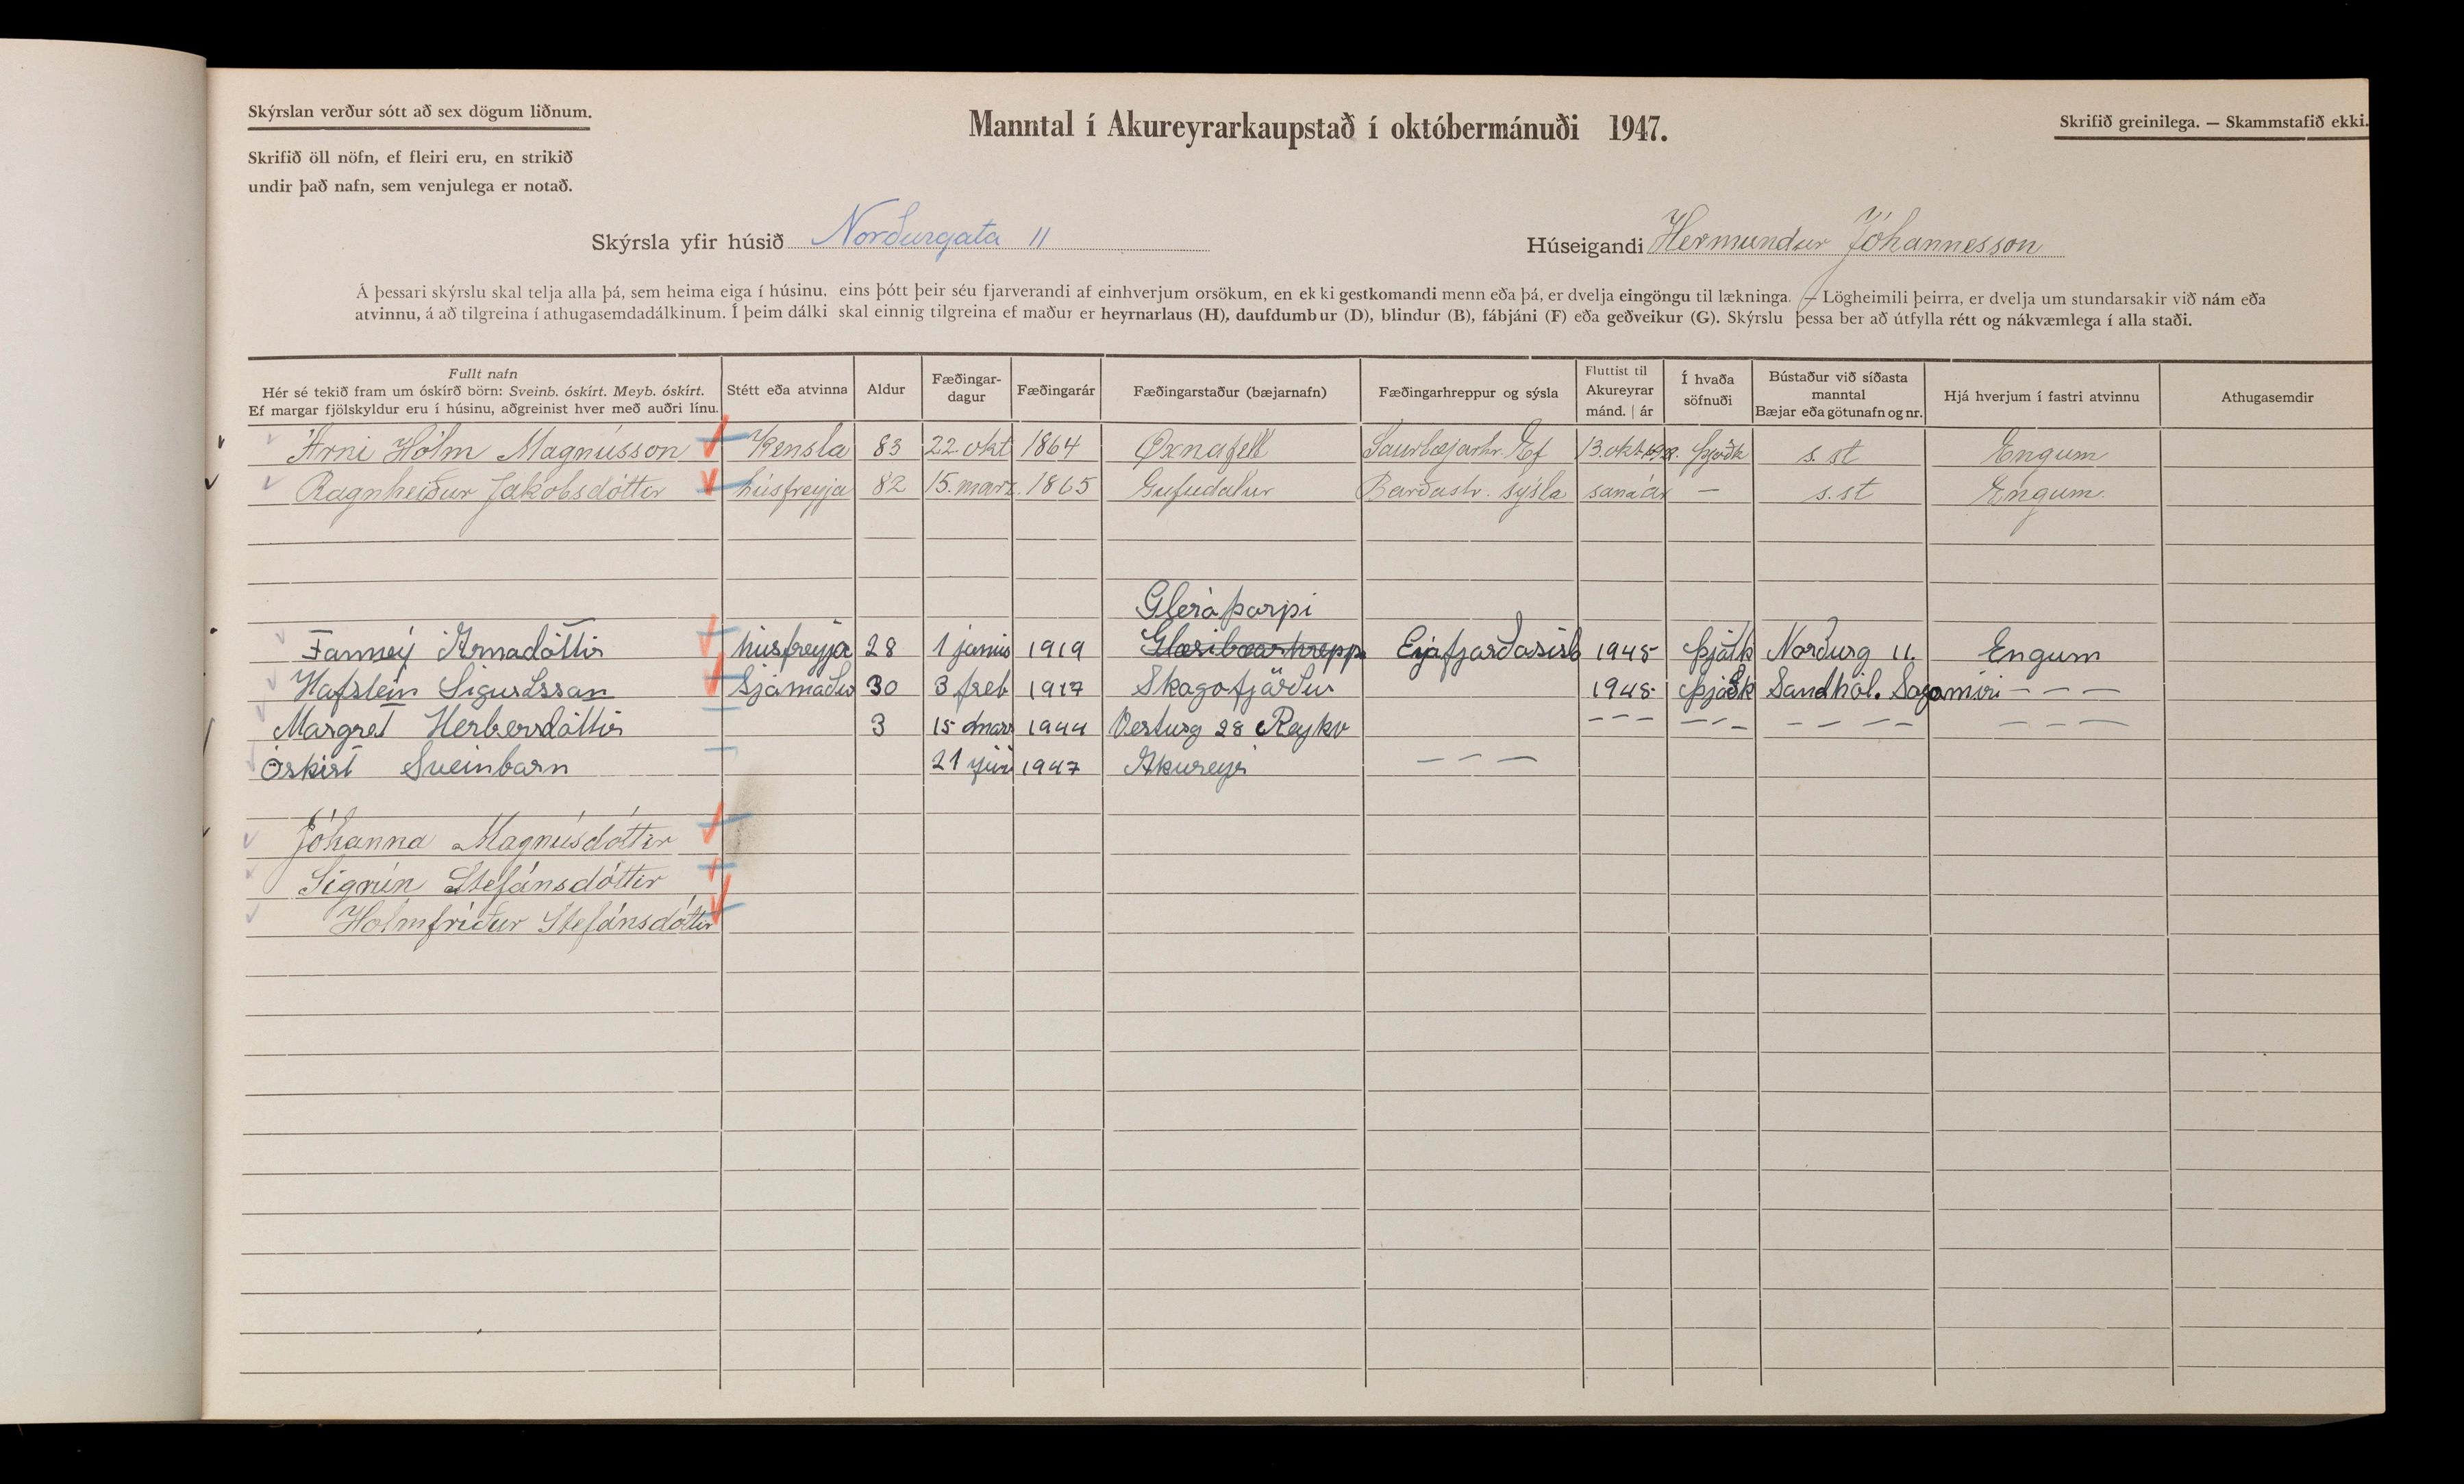 Skýrslan verður sótt að sex dögum liðnum.
Manntal í Akureyrarkaupstað í októbermánuði 1947.
Skrifið greinilega. — Skammstafið ekki.
Skrifið öll nöfn, ef fleiri eru, en strikið
undir það nafn, sem venjulega er notað.
Skýrsla yfir húsið Norðurgata 11
Húseigandi Hermundur Jóhannesson
Á þessari skýrslu skal telja alla þá, sem heima eiga í húsinu, eins þótt þeir séu fjarverandi af einhverjum orsökum, en ekki gestkomandi menn eða þá, er dvelja eingöngu til lækninga. — Lögheimili þeirra, er dvelja um stundarsakir við nám eða
atvinnu, á að tilgreina í athugasemdadálkinum. Í þeim dálki skal einnig tilgreina ef maður er heyrnarlaus (H), daufdumbur (D), blindur (B), fábjáni (F) eða geðveikur (G). Skýrslu þessa ber að útfylla rétt og nákvæmlega í alla staði.
Fullt nafn
Hér sé tekið fram um óskírð börn: Sveinb. óskírt. Meyb. óskírt.
Ef margar fjölskyldur eru í húsinu, aðgreinist hver með auðri línu.
Stétt eða atvinna
Aldur
Fæðingar-
dagur
Fæðingarár
Fæðingarstaður (bæjarnafn)
Fæðingarhreppur og sýsla
Fluttist til
Akureyrar
mánd. | ár
Í hvaða
söfnuði
Bústaður við síðasta
manntal
Bæjar eða götunafn og nr.
Hjá hverjum í fastri atvinnu
Athugasemdir
Árni Hólm Magnússon Kensla 83 22 okt 1864 Öxnafell Saurbæjarhr. Ef 13. okt þjóðk s. st Engum
Ragnheiður Jakobsdóttir húsfreyja 82 15. marz. 1865 Gufudalur Barðastr. sýsla sama ár — s. st Engum
Gleráþorpi
Fanney Árnadóttir húsfreyja 28 1 júní 1919 Glæsibæarhrepp Eyjafjarðasísl 1945 þjóðk Norðurg 11. Engum
Hafstein Sigurdssan Sjómaður 30 3 freb 1917 Skagafjörður 1945 þjóðk Sandhól. - - -
Margret Herbersdóttir 3 15 mars 1944 Vesturg 28 Reykv - - - - - - - - - - - - -
Óskírt Sveinbarn 21 júní 1947 Akureyri - - -
Jóhanna Magnúsdóttir
Sigrún Stefánsdóttir
Hólmfríður Stefánsdóttir